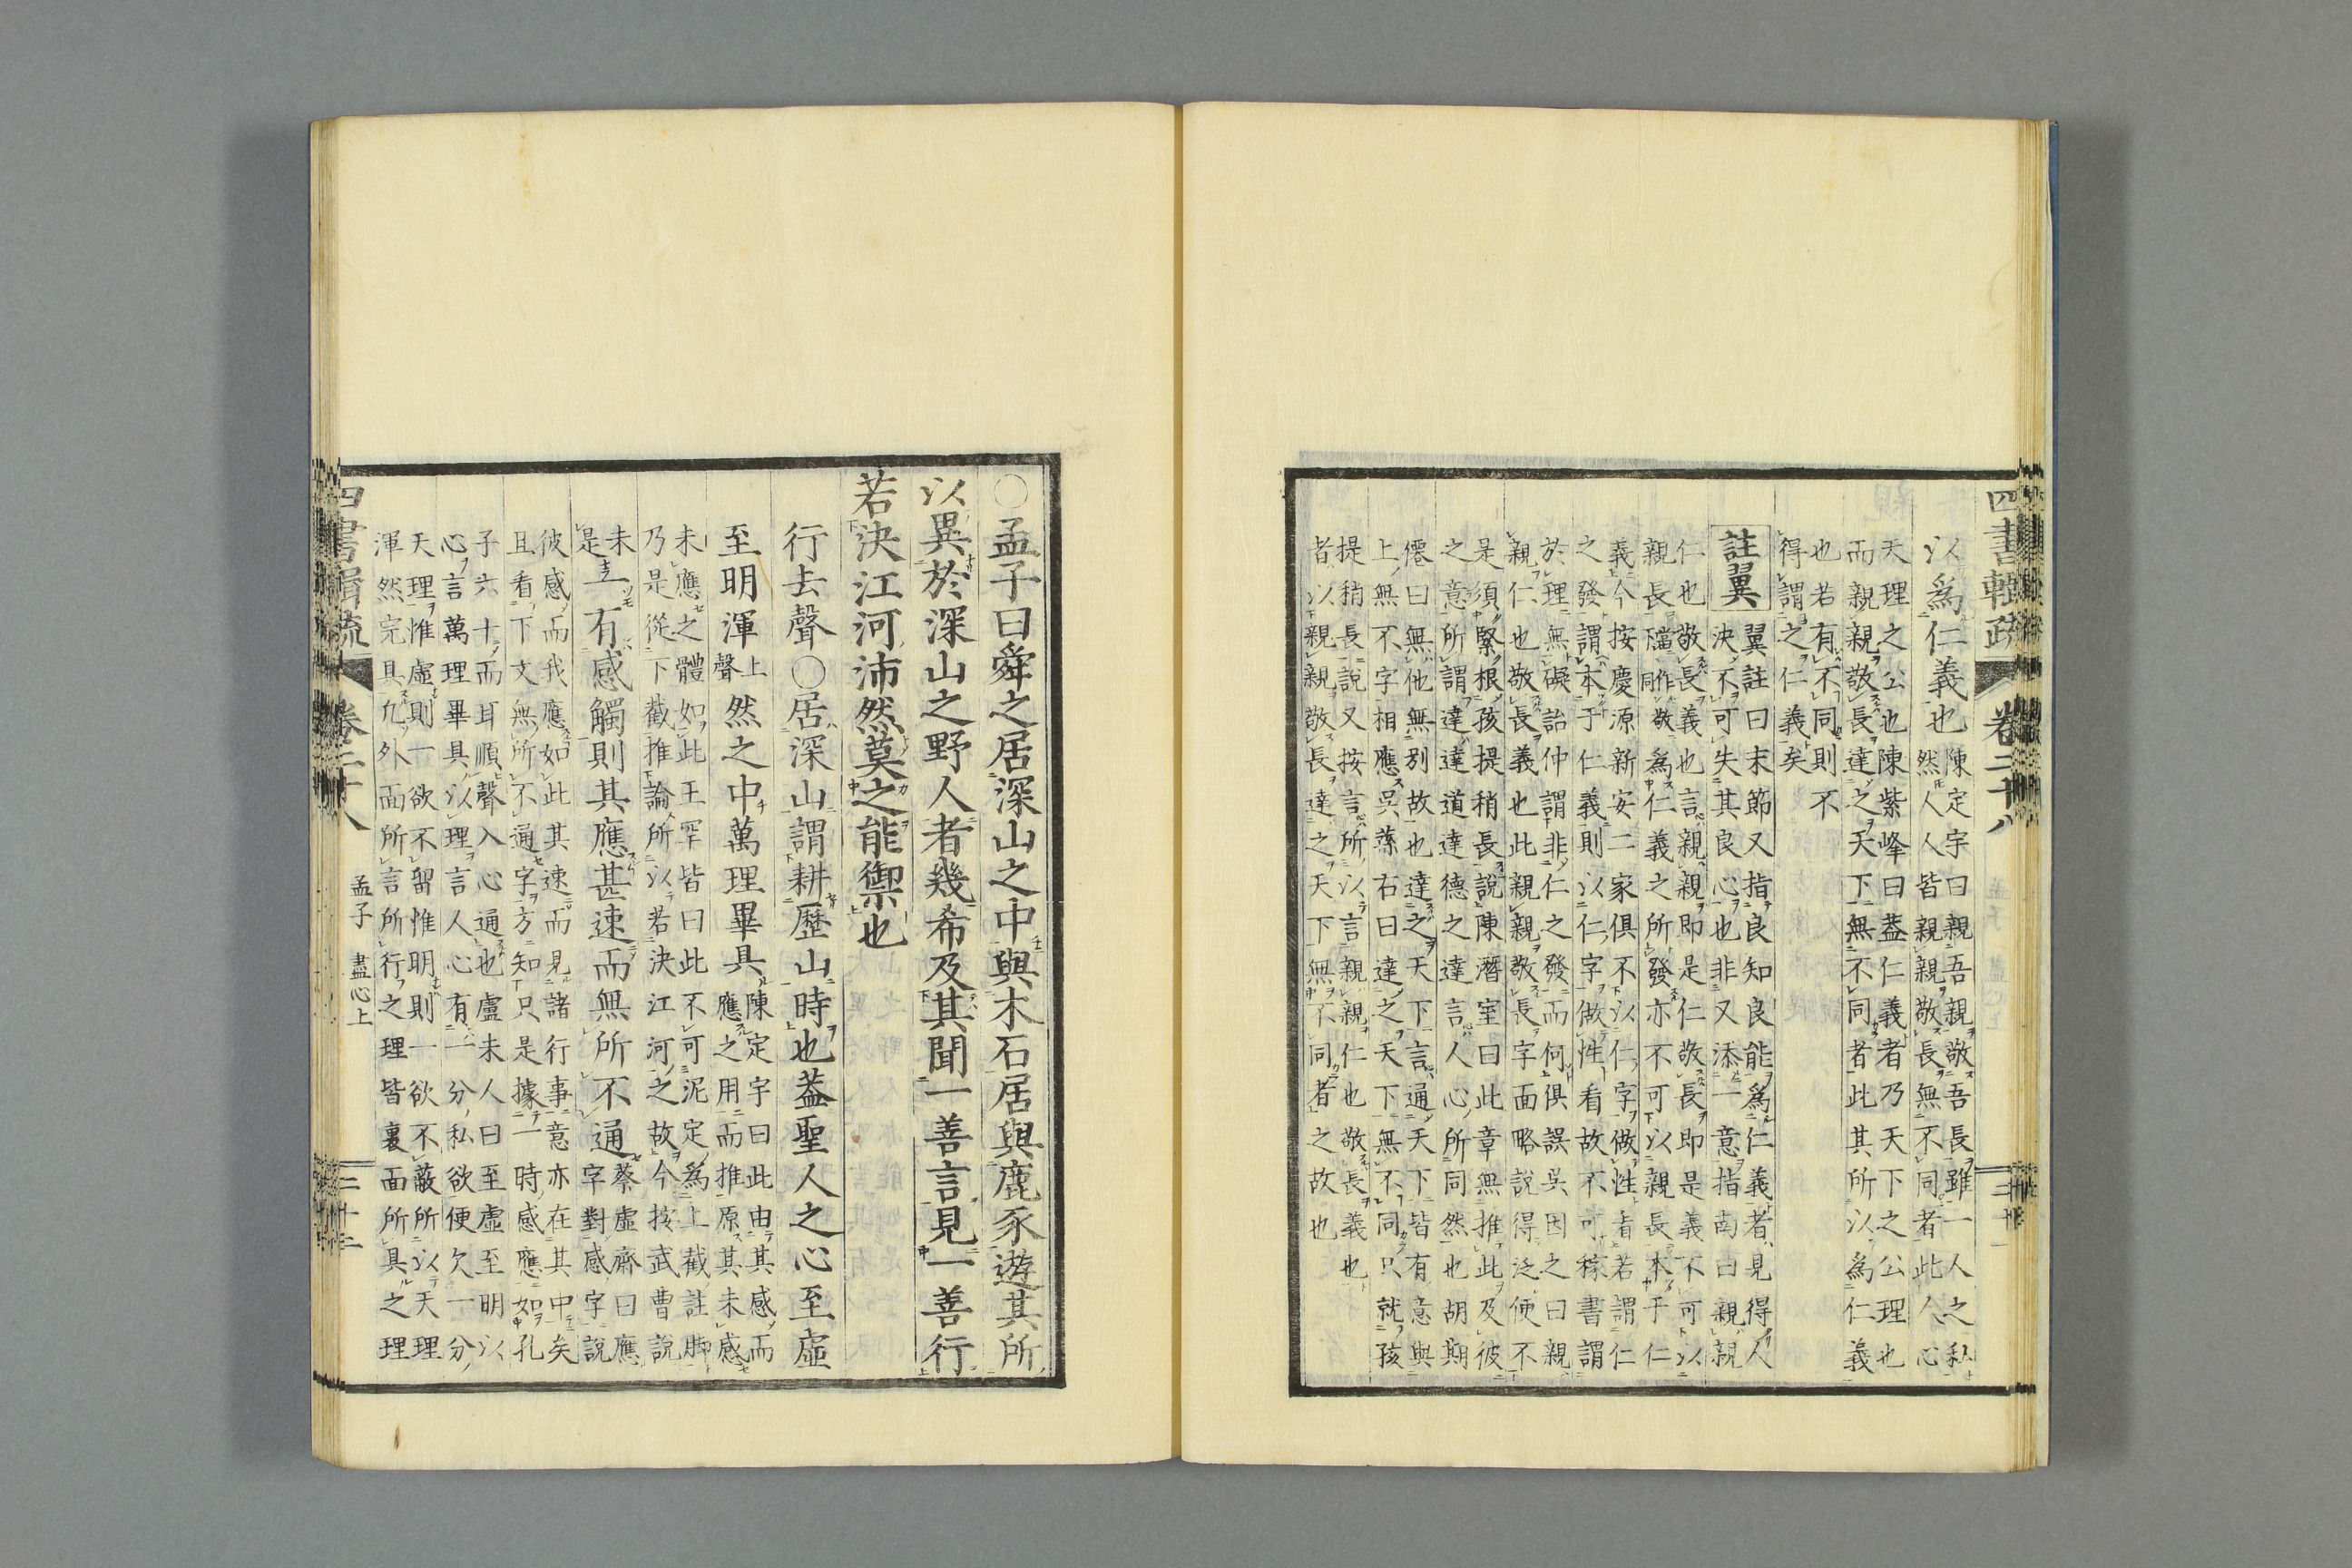 四書輯疏
卷二十八
以爲仁義也
陳定宇曰親吾親敬吾長雖一人之私
然人人皆親親敬長無不同者此人心
天理之公也陳紫峰曰蓋仁義者乃天下之公理也
而親親敬長達之天下無不同者此其所以爲仁義
也若有不同則不
得謂之仁義矣
註翼
翼註曰末節又指良知良能爲仁義者見得人
決不可失其良心也非又添一意指南曰親親
仁也敬長義也言親親即是仁敬長即是義不可以
親長作敬爲仁義之所發亦不可以親長本于仁
義今按慶源新安二家俱不以仁字做性看若謂仁
之發謂本于仁義則以仁字做性看故不可稼書謂
於理無礙詒仲謂非仁之發而何俱誤吳因之曰親
親仁也敬長義也此親親敬長字面略說得泛便不
是須緊根孩提稍長說陳潛室曰此章無推此及彼
之意所謂達達道達德之達言人心所同然也胡期
僊曰無他無別故也達之天下言通天下皆有意與
上無不字相應吳蓀右曰達之天下無不同只就孩
提稍長說又按言所以言親親仁也敬長義也
者以親親敬長達之天下無不同者之故也
○孟子曰舜之居深山之中與木石居與鹿豕遊其所
以異於深山之野人者幾希及其聞一善言見一善行
若決江河沛然莫之能禦也
行去聲○居深山謂耕歷山時也蓋聖人之心至虛
至明渾上聲然之中萬理畢具
陳定宇曰此由其感而
應之用而推原其未感
未應之體如此王罕皆曰此不可泥定爲上截註脚
乃是從下截推論所以若決江河之故今按武曹說
未是
一有感觸則其應甚速而無所不通
蔡虛齋曰應
字對感字說
彼感而我應如此其速而見諸行事意亦在其中矣
且看下文無所不通字方知只是據一時感應如孔
子六十而耳順聲入心通也盧未人曰至虛至明以
心言萬理畢具以理言人心有一分私欲便欠一分
天理惟虛則一欲不留惟明則一欲不蔽所以天理
渾然完具凡外面所言所行之理皆裏面所具之理
四書輯疏
卷二十八
孟子 盡心上
二十二